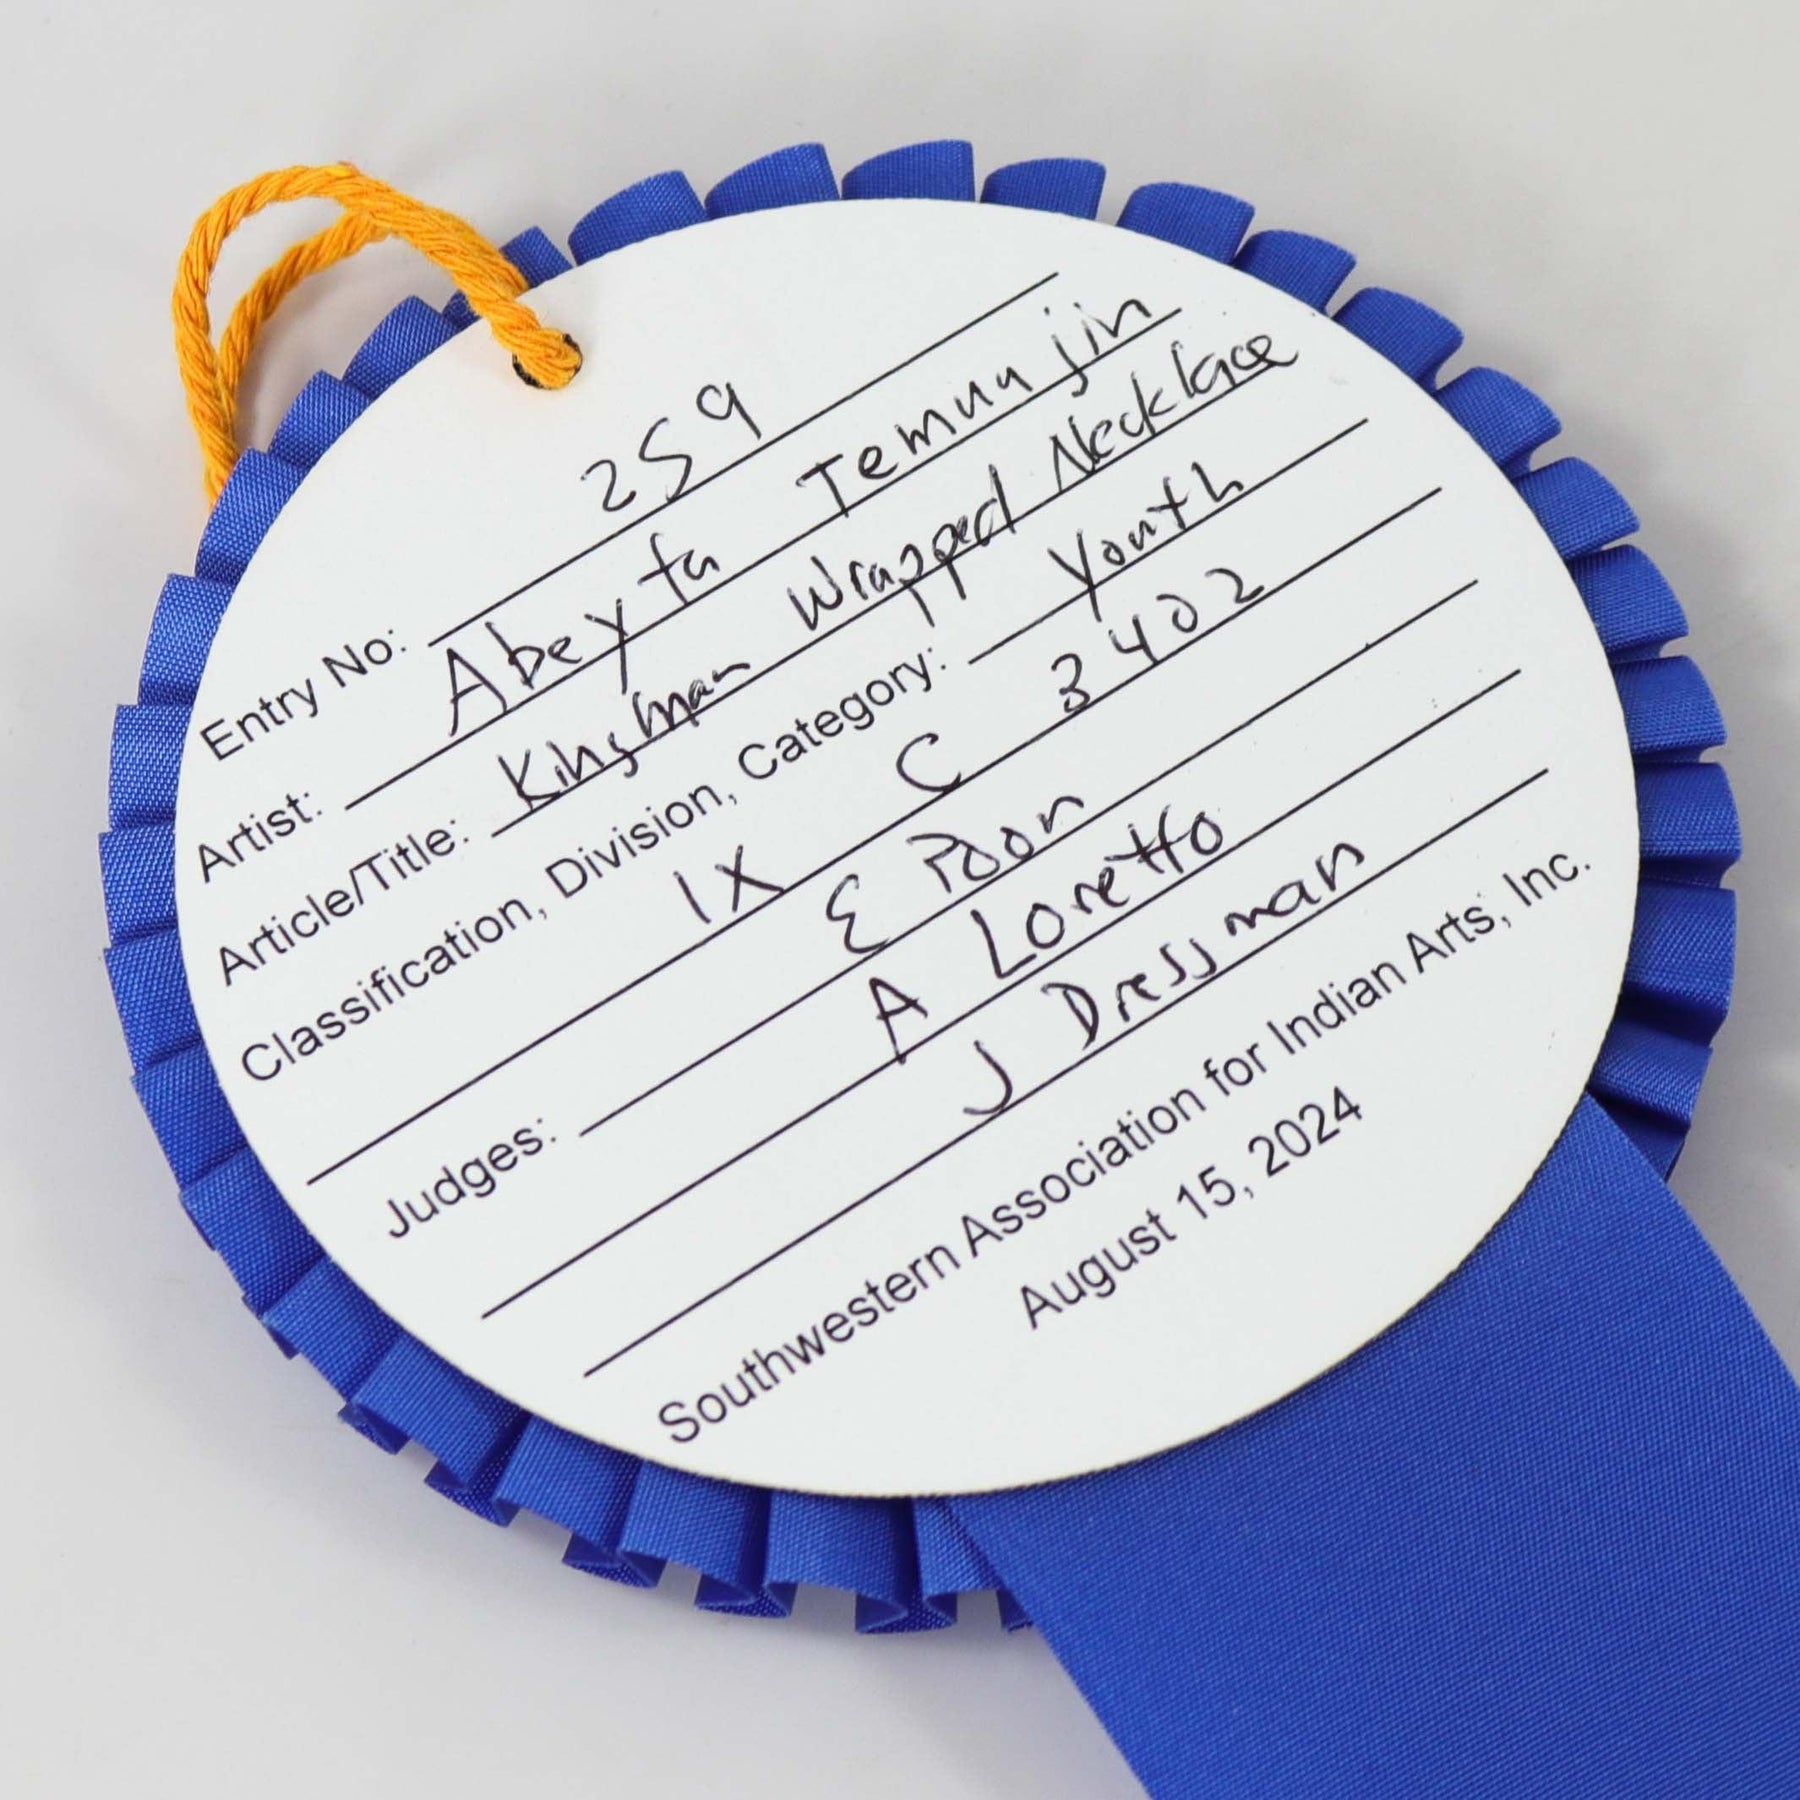 Entry No: 259
Artist: Abeyta Temuujin
Article/Title: Kingman Wrapped Necklace
Classification, Division, Category: Youth
IX C 3402
Judges: E Poon
A Loretto
J Dressman
Southwestern Association for Indian Arts, Inc.
August 15, 2024